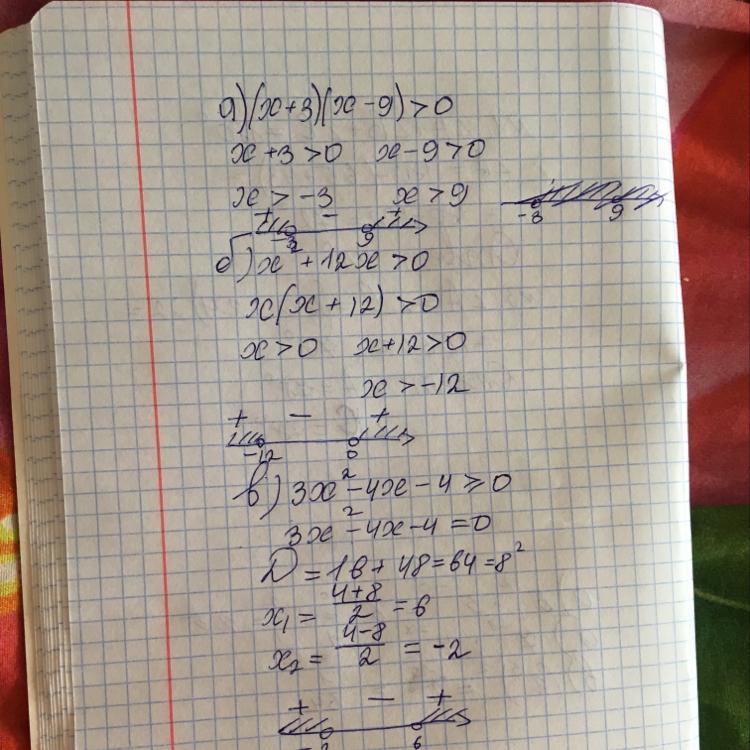 а) (x+3)(x-9)>0
x+3>0 x-9>0
x>-3 x>9 -3 9
+ - +
-3 9
б) x²+12x>0
x(x+12)>0
x>0 x+12>0
x>-12
+ - +
-12 0
в) 3x²-4x-4≥0
3x²-4x-4=0
D=16+48=64=8²
x₁=(4+8)/2=6
x₂=(4-8)/2=-2
+ - +
-2 6